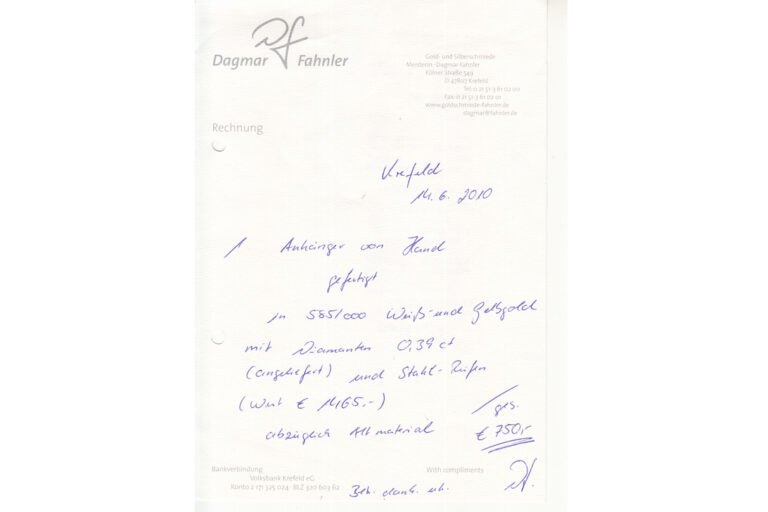 Dagmar Fahnler
Gold- und Silberschmiede
Meisterin · Dagmar Fahnler
Kölner Straße 549
D 47807 Krefeld
Tel: 0 21 51-3 61 02 00
Fax: 0 21 51-3 61 02 01
www.goldschmiede-fahnler.de
dagmar@fahnler.de
Rechnung
Krefeld
14. 6. 2010
1 Anhänger von Hand
gefertigt
in 585/000 Weiß- und Gelbgold
mit Diamanten 0,39 ct
(angeliefert) und Stahl-Reifen
(Wert € 1165,-)
abzüglich Altmaterial
ges.
€ 750,-
Bankverbindung
Volksbank Krefeld eG
Konto 2 171 325 024 · BLZ 320 603 62
With compliments
Betr. dank. erh.